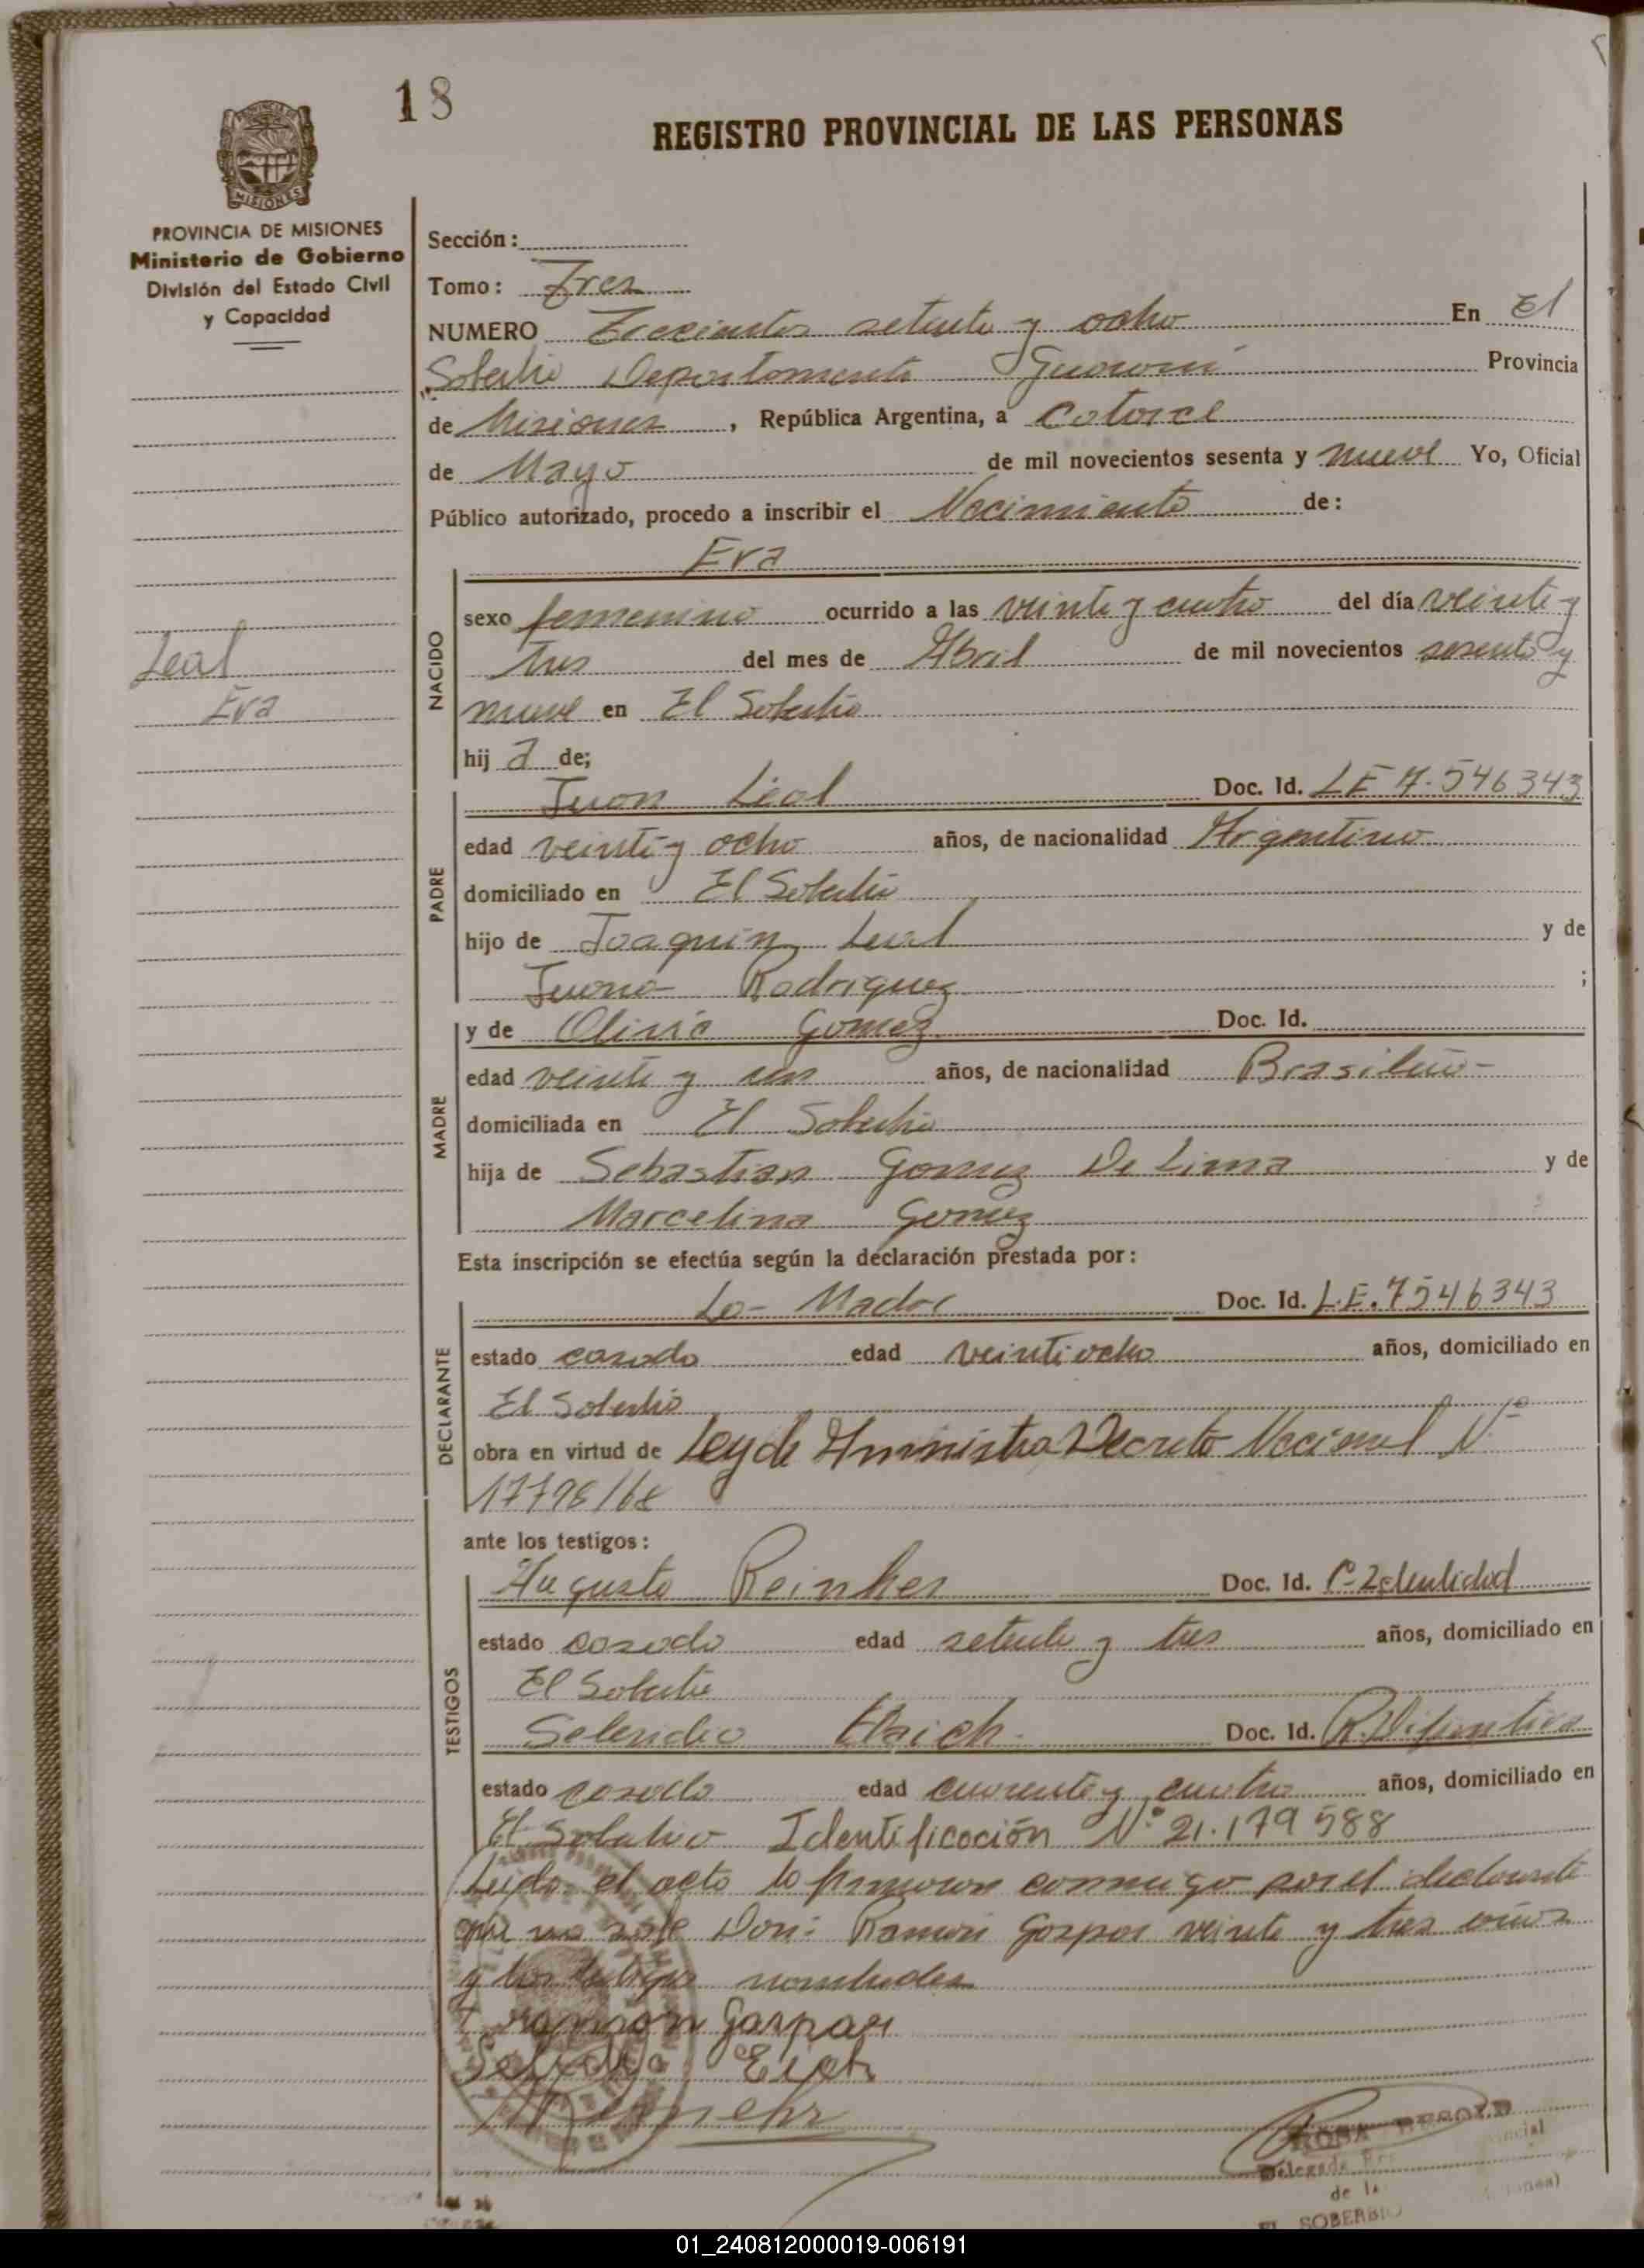 18
REGISTRO PROVINCIAL DE LAS PERSONAS
MISIONES
PROVINCIA DE MISIONES
Ministerio de Gobierno
División del Estado Civil
y Capacidad
Sección:
Tomo: Tres
NUMERO Trecientos setenta y ocho En El
Soberbio Departamento Guarani Provincia
de Misiones, República Argentina, a Catorce
de Mayo de mil novecientos sesenta y nueve Yo, Oficial
Público autorizado, procedo a inscribir el Nacimiento de:
Eva
sexo femenino ocurrido a las veinte y cuatro del día veinte y
tres del mes de Abril de mil novecientos sesenta y
nueve en El Soberbio
hij a de;
NACIDO
Leal
Eva
Juan Leal Doc. Id. LE 7.546343
edad veinte y ocho años, de nacionalidad Argentino
domiciliado en El Soberbio
hijo de Joaquin Leal y de
Juana Rodriguez ;
PADRE
y de Olivia Gomez Doc. Id.
edad veinte y un años, de nacionalidad Brasileña
domiciliada en El Soberbio
hija de Sebastian Gomez De Lima y de
Marcelina Gomez
MADRE
Esta inscripción se efectúa según la declaración prestada por:
La Madre Doc. Id. L.E. 7546343
estado casado edad veintiocho años, domiciliado en
El Soberbio
obra en virtud de Ley de Amnistia Decreto Nacional Nº
DECLARANTE
ante los testigos:
Augusto Reinher Doc. Id. C. Identidad
estado casado edad setenta y tres años, domiciliado en
El Soberbio
Selerido Doc. Id.
estado casado edad cuarenta y cuatro años, domiciliado en
El Soberbio Identificación Nº 21.179588
TESTIGOS
Leida el acta la firmaron conmigo por el declarante
que no sabe Don: Ramon Gaspar veinte y tres años
y los testigos nombrados
Ramon Gaspar
ROSA
Delegada
de la
EL SOBERBIO
01_240812000019-006191